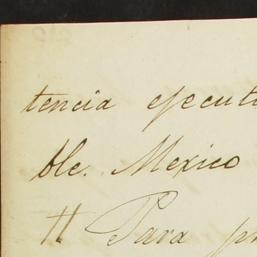 tencia ejecuta
ble. Mexico
Para pr